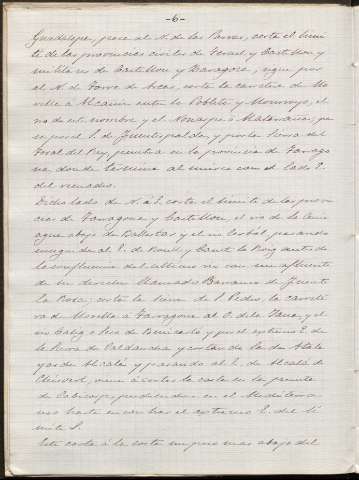 -6-
Guadalope, pasa al N. de las Parras, corta el limi-
te de las provincias civiles de Teruel y Castellon y
militares de Castellon y Zaragoza, sigue por
el N. de Torre de Arcas, corta la carretera de Mo
rella á Alcañiz entre la Pobleta y Monroyo, el
rio de este nombre y el Nonaspe ó Matarraña, pa
sa por el S. de Fuentespalda, y por la Sierra del
Coral del Rey, penetra en la provincia de Tarrago
na donde termina al unirse con el lado E.
del recuadro.
Dicho lado de N. á S. corta el limite de las provin
cias de Tarragona y Castellon, el rio de la Cenia
agua abajo de Ballestar y el rio Cerbol, pasando
en seguida al E. de Rosell y Canet lo Roig antes de
la confluencia del ultimo rio con un afluente
de su derecha llamado Barranco de Fuente
la Rosa; corta la Sierra de S. Pedro, la carrete
ra de Morella á Tarragona al O. de la Jana, y el
rio Calig ó Seco de Benicarló y por el extremo E. de
la Sierra de Valdancha y cortando la de Atala
yas de Alcalá y pasando al E. de Alcalá de
Chisvert, viene á cortar la costa en la punta
de Capicorp, perdiendose en el Mediterra
neo hasta encontrar el extremo E. del li
mite S.
Este corta á la costa un poco mas abajo del